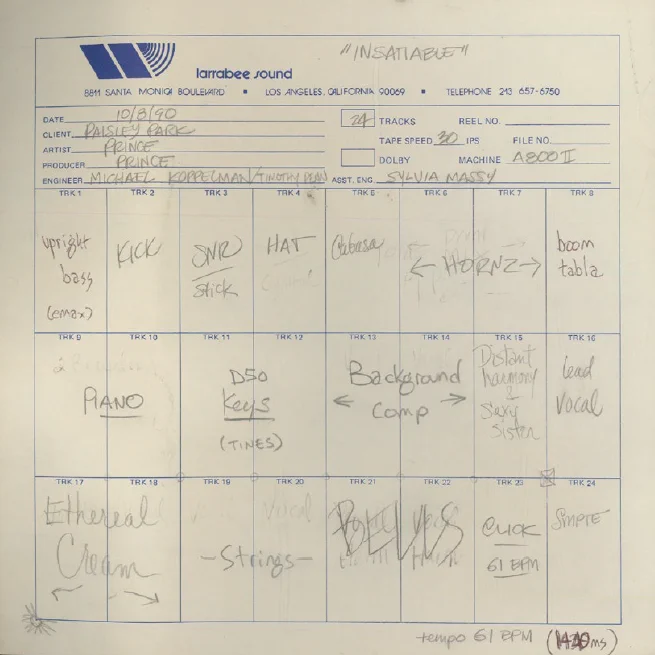 "INSATIABLE"
larrabee sound
8811 SANTA MONICA BOULEVARD ▪ LOS ANGELES, CALIFORNIA 90069 ▪ TELEPHONE 213 657-6750
DATE 10/8/90
24 TRACKS REEL NO.
CLIENT PAISLEY PARK
TAPE SPEED 30 IPS FILE NO.
ARTIST PRINCE
DOLBY MACHINE A800 II
PRODUCER PRINCE
ENGINEER MICHAEL KOPPELMAN/TIMOTHY ASST. ENG. SYLVIA MASSY
TRK 1 TRK 2 TRK 3 TRK 4 TRK 5 TRK 6 TRK 7 TRK 8
upright
bass
(emax)
KICK
SNR
Stick
HAT
Cabasa
← HORNZ →
boom
tabla
TRK 9 TRK 10 TRK 11 TRK 12 TRK 13 TRK 14 TRK 15 TRK 16
PIANO
D50
Keys
(TINES)
Background
← Comp →
Distant
harmony
&
Sexy
Sister
lead
vocal
TRK 17 TRK 18 TRK 19 TRK 20 TRK 21 TRK 22 TRK 23 TRK 24
Ethereal
Cream
← →
Vocal
-Strings-
BELLS
CLICK
61 BPM
SMPTE
tempo 61 BPM